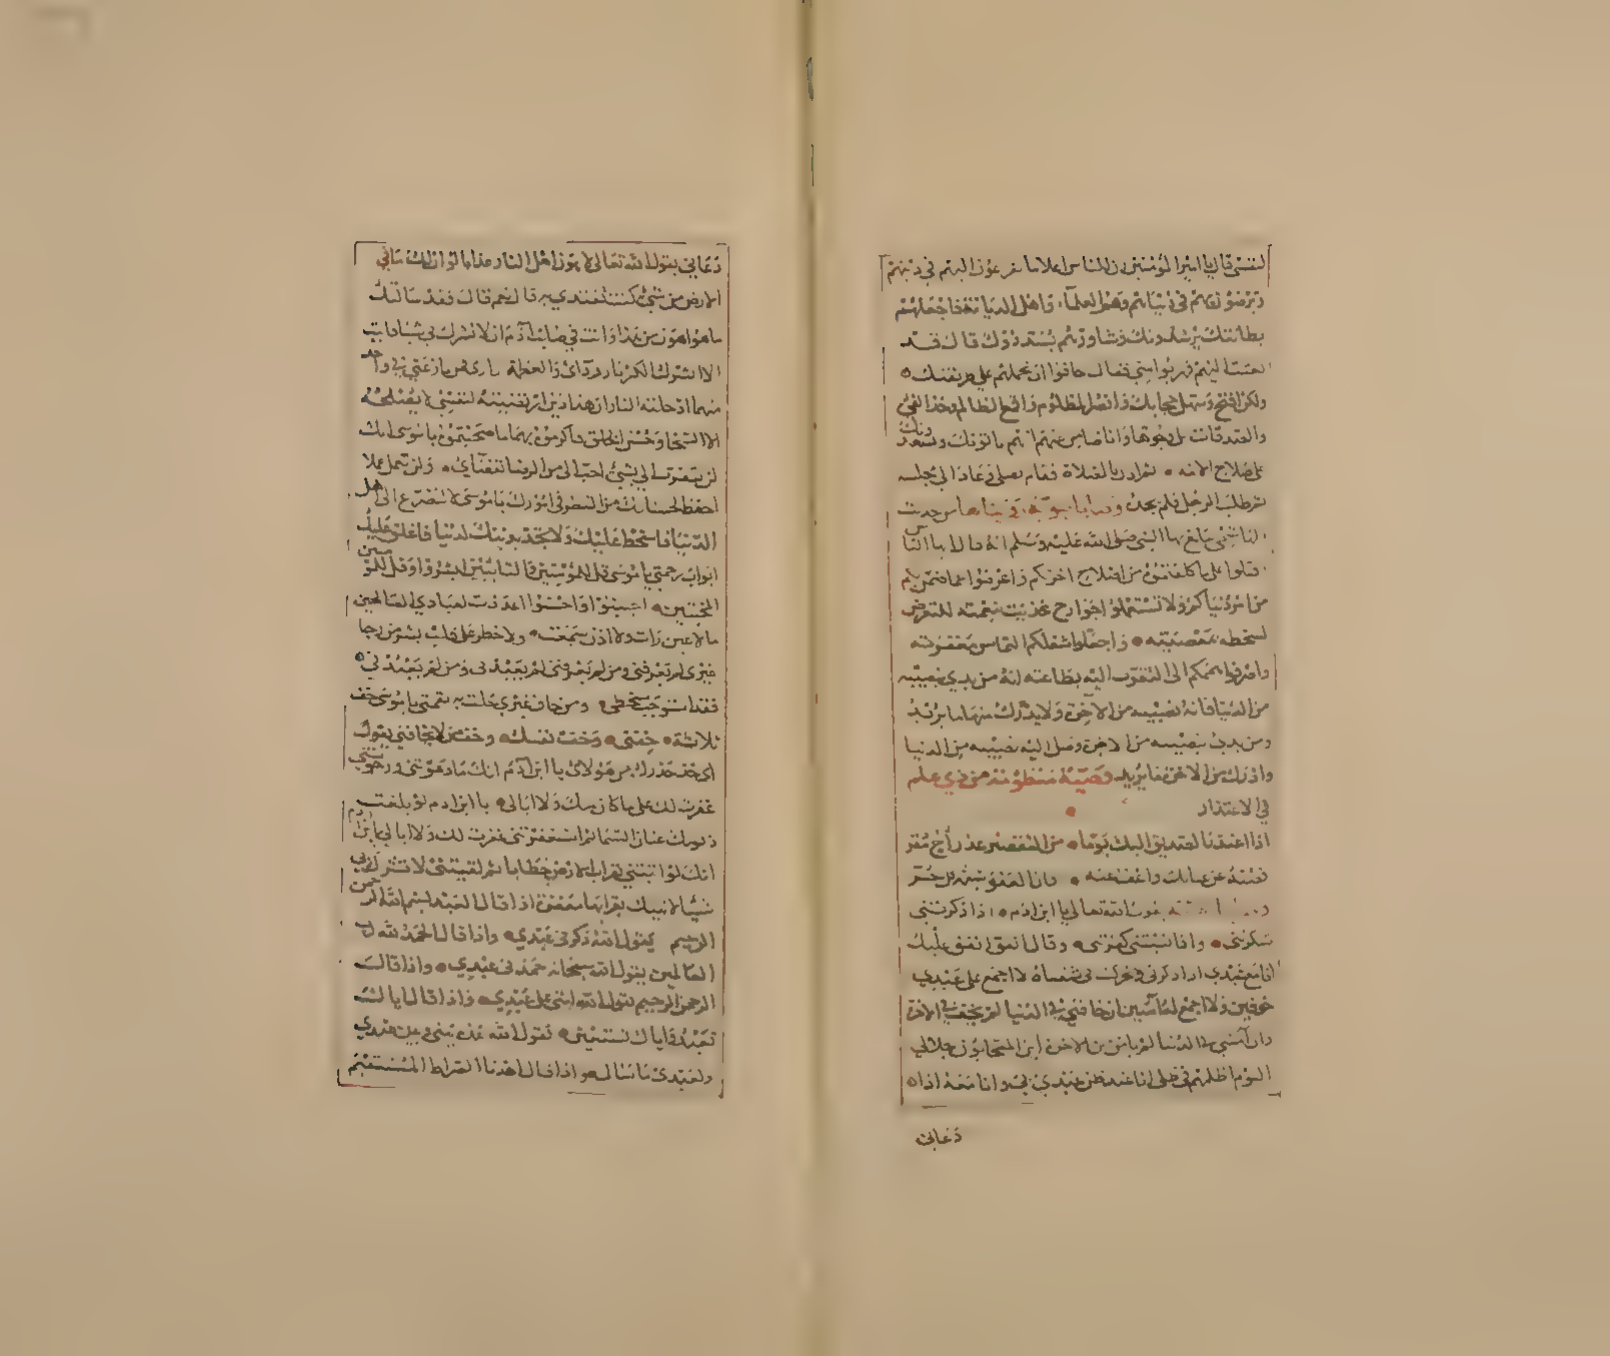 لنفسى قال يا امير المؤمنين ان للناس اعلاما يفزعون اليهم في دينهم
ويرضون بهم في دنياهم وهم العلماء واهل الديانة فاجعلهم
بطانتك يرشدونك وشاورهم يسددوك قال قد
بعثت اليهم فهربوا مني فقال خافوا ان تحملهم على طريقتك
ولكن افتح وسهل حجابك وانصر المظلوم واقمع الظالم وخذ الفئ
والصدقات على وجوهها وانا ضامن عنهم انهم ياتونك ويسعدونك
على صلاح الامة ثم اذن بالصلاة فقام يصلى وعاد الى مجلسه
ثم طلب الرجل فلم يجده
صلى الله عليه وسلم انه قال ايها الناس
اقبلوا على ما كلفتموه من اصلاح اخرتكم واعرضوا عما ضمن لكم
من امر دنياكم ولا تستعملوا جوارح غذيت بنعمته للتعرض
لسخطه بمعصيته واجعلوا شغلكم التماس مغفرته
واصرفوا هممكم الى التقرب اليه بطاعته انه من بدي بنصيبه
من الدنيا فاته نصيبه من الاخرة ولا يدرك منها ما يريد
ومن بدئ بنصيبه من الاخرة وصل اليه نصيبه من الدنيا
وادرك من الاخرة ما يريد
في الاعتذار
اذا اعتذر الصديق اليك يوما من التقصير عذر اخ مقر
فصنه عن عتابك واعف عنه فان العفو شيمة كل حر
يقول الله تعالى يا ابن ادم اذا ذكرتني
شكرتني واذا نسيتني كفرتني وقال انفق انفق عليك
انا مع عبدي اذا ذكرني وتحركت بي شفتاه لا اجمع على عبدي
خوفين ولا اجمع له امنين ان خافني في الدنيا لم يخف في الاخرة
وان امنني في الدنيا لم يامن في الاخرة اين المتحابون بجلالي
اليوم اظلهم في ظلى انا عند ظن عبدي بي وانا معه اذا
دعاني
دعاني يقول الله تعالى لاهون اهل النار عذابا لو ان لك ما في
الارض من شئ كنت تفتدي به قال نعم قال فقد سالتك
ما هو اهون من هذا وانت في صلب ادم ان لا تشرك بي شيئا فابيت
الا الشرك الكبرياء ردائ والعظمة ازاري فمن نازعني في واحد
منهما ادخلته النار ان هذا دين ارتضيته لنفسي لا يصلحه
الا السخا وحسن الخلق فاكرموه بهما ما صحبتموه يا موسى انك
لن تتقرب الي بشئ احب الى من الرضا بقضاى ولن تعمل عملا
احفظ لحسناتك من النظر في امورك يا موسى لا تتضرع الى اهل
الدنيا فاسخط عليك ولا تجد بدينك لدنياهم فاغلق عليك
ابواب رحمتي يا موسى قل للمؤمنين التائبين ابشروا وقل للمؤمنين
المخبتين اعددت لعبادي الصالحين
ما لا عين رات ولا اذن سمعت ولا خطر على قلب بشر من رجا
غيرى لم يعرفني ومن لم يعرفني لم يعبدني ومن لم يعبدني
فقد استوجب سخطي ومن خاف غيري حلت به نقمتي يا موسى خف
ثلاثة خفني وخف نفسك وخف من لا يخافني يقول
يا ابن ادم انك ما دعوتني ورجوتني
غفرت لك على ما كان منك ولا ابالي يا ابن ادم لو بلغت
ذنوبك عنان السما ثم استغفرتني غفرت لك ولا ابالي يا ابن ادم
انك لو اتيتني بقراب الارض خطايا ثم لقيتني لا تشرك بي
شيئا لاتيتك بقرابها مغفرة اذا قال العبد بسم الله الرحمن
الرحيم يقول الله ذكرني عبدي واذا قال الحمد لله رب
العالمين يقول الله سبحانه حمدني عبدي واذا قال
الرحمن الرحيم يقول الله اثنى علي عبدي واذا قال اياك
نعبد واياك نستعين يقول الله هذه بيني وبين عبدي
ولعبدي ما سال واذا قال اهدنا الصراط المستقيم